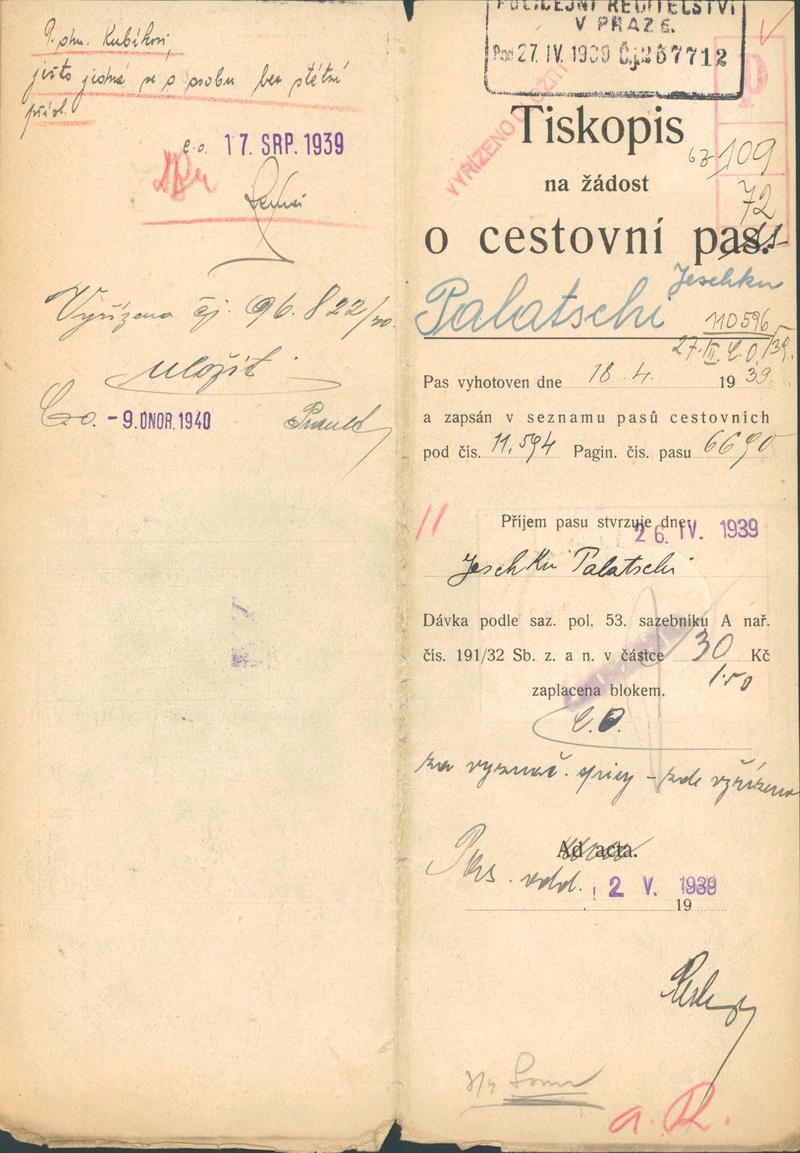 P. phu. Kubíkovi,
ježto jedná se o osobu bez státní
přísl.
c.o. 17. SRP. 1939
Vyřízeno čj. 96.822/40.
uložit.
C.o. - 9. ÚNOR. 1940
POLICEJNÍ ŘEDITELSTVÍ
V PRAZE.
Pod 27. IV. 1939 Čj. 267712
VYŘÍZENO ULOŽIT!
P
Tiskopis
63 109
na žádost
72
o cestovní pas.
Jeschku
Palatschi
110596
Pas vyhotoven dne 18. 4. 1939.
a zapsán v seznamu pasů cestovních
pod čís. 11.594 Pagin. čís. pasu 6690
11
Příjem pasu stvrzuje dne:
26. IV. 1939
Jeschku Palatschi
Dávka podle saz. pol. 53. sazebníku A nař.
čís. 191/32 Sb. z. a n. v částce 30 Kč
1.50
zaplacena blokem.
C.O.
za vyznač. – zde vyřízeno
Ad acta.
Pas. odd. 2 V. 1939
19
a. R.